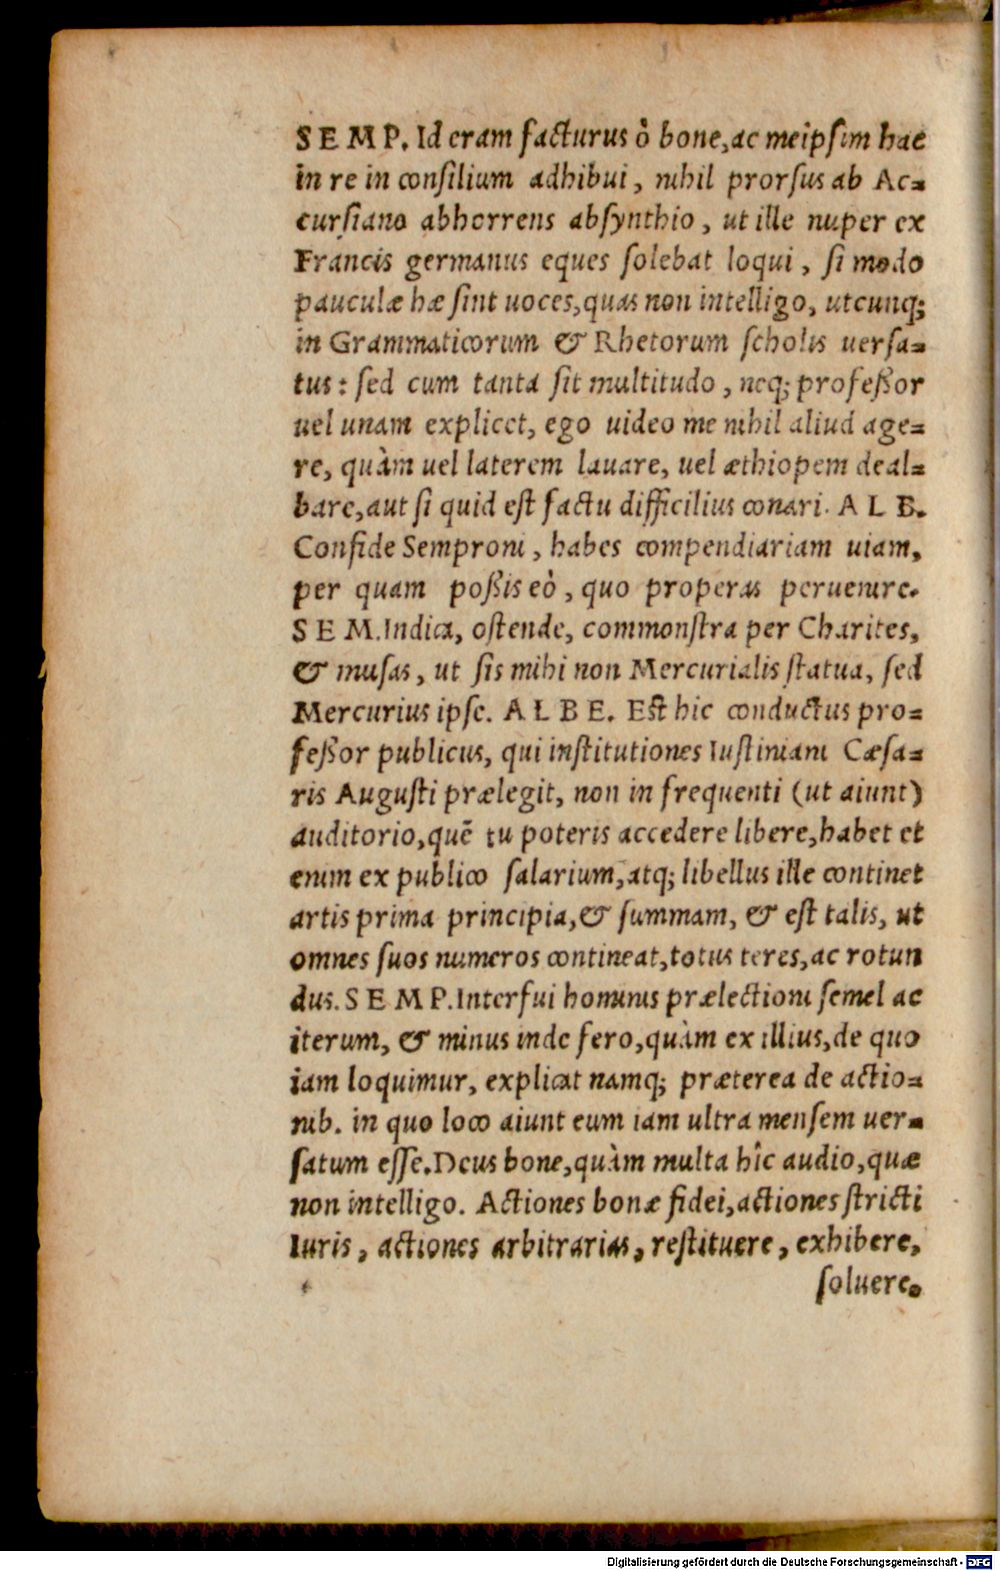 SEMP. Id eram facturus ò bone, ac meipsim hac
in re in consilium adhibui, nihil prorsus ab Ac-
cursiano abhorrens absynthio, ut ille nuper ex
Francis germanus eques solebat loqui, si modo
pauculæ hæ sint uoces, quas non intelligo, utcunq;
in Grammaticorum & Rhetorum scholis uersa-
tus: sed cum tanta sit multitudo, neq; profeßor
uel unam explicet, ego uideo me nihil aliud age-
re, quàm uel laterem lauare, uel æthiopem deal-
bare, aut si quid est factu difficilius conari. ALB.
Confide Semproni, habes compendiariam uiam,
per quam poßis eò, quo properas peruenire.
SEM. Indica, ostende, commonstra per Charites,
& musas, ut sis mihi non Mercurialis statua, sed
Mercurius ipse. ALBE. Est hic conductus pro-
feßor publicus, qui institutiones Iustiniani Cæsa-
ris Augusti prælegit, non in frequenti (ut aiunt)
auditorio, quē tu poteris accedere libere, habet et
enim ex publico salarium, atq; libellus ille continet
artis prima principia, & summam, & est talis, ut
omnes suos numeros contineat, totus teres, ac rotun
dus. SEMP. Interfui hominis prælectioni semel ac
iterum, & minus inde fero, quàm ex illius, de quo
iam loquimur, explicat namq; præterea de actio-
nib. in quo loco aiunt eum iam ultra mensem uer-
satum esse. Deus bone, quàm multa hîc audio, quæ
non intelligo. Actiones bonæ fidei, actiones stricti
Iuris, actiones arbitrarias, restituere, exhibere,
soluere.
Digitalisierung gefördert durch die Deutsche Forschungsgemeinschaft - DFG